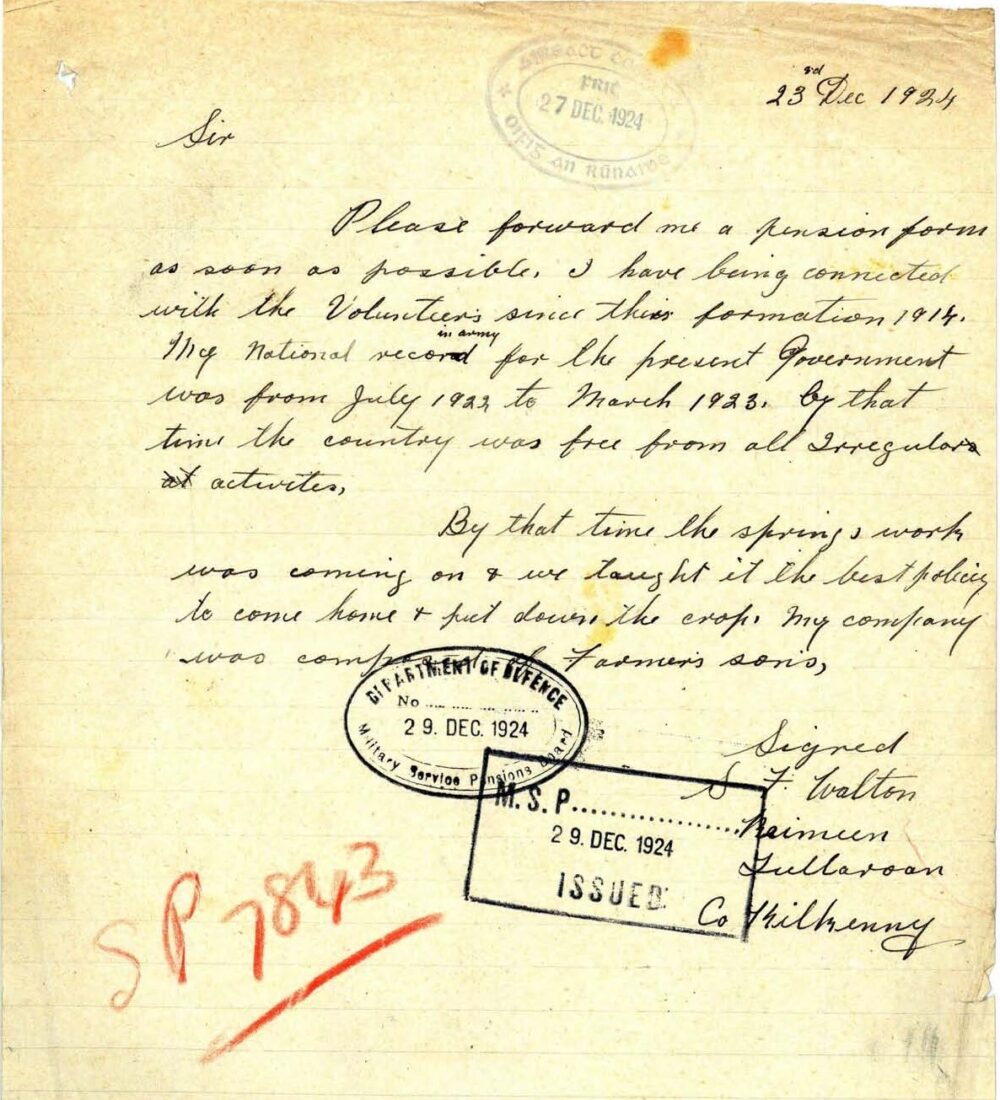 23rd Dec 1924
Sir
FRITH
27 DEC. 1924
OIFIG AN RÚNAIDHE
Please forward me a pension form
as soon as possible. I have being connected
with the Volunteers since their formation 1914.
in army
My National record for the present Government
was from July 1922 to March 1923. by that
time the country was free from all Irregular
at activites,
By that time the springs work
was coming on & we taught it the best policy
to come home & put down the crop. My company
was composed of Farmers sons,
DEPARTMENT OF DEFENCE
No
29. DEC. 1924
Military Service Pensions Board
Signed
S F. Walton
M. S. P.
29. DEC. 1924
ISSUED
Tullaroan
Co Kilkenny
SP 7843